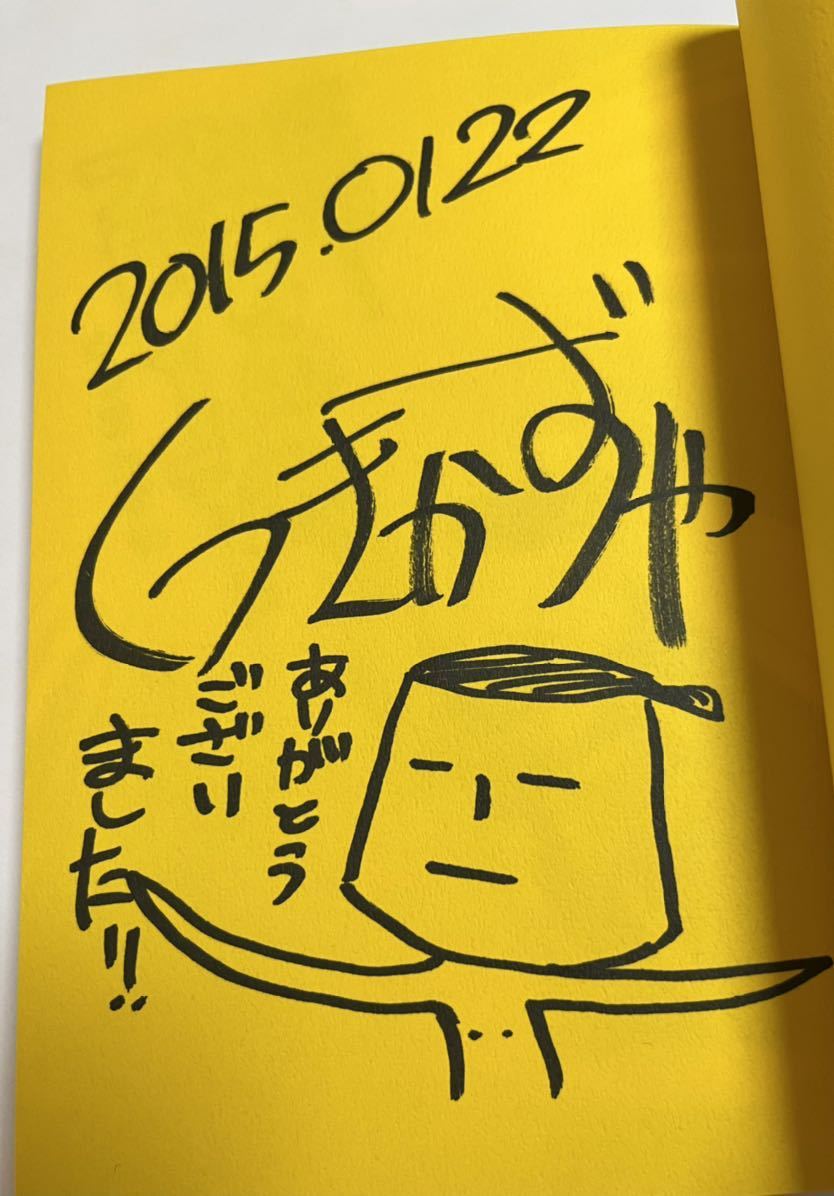 2015.0122
くつきかずや
ありがとう
ござい
ました!!